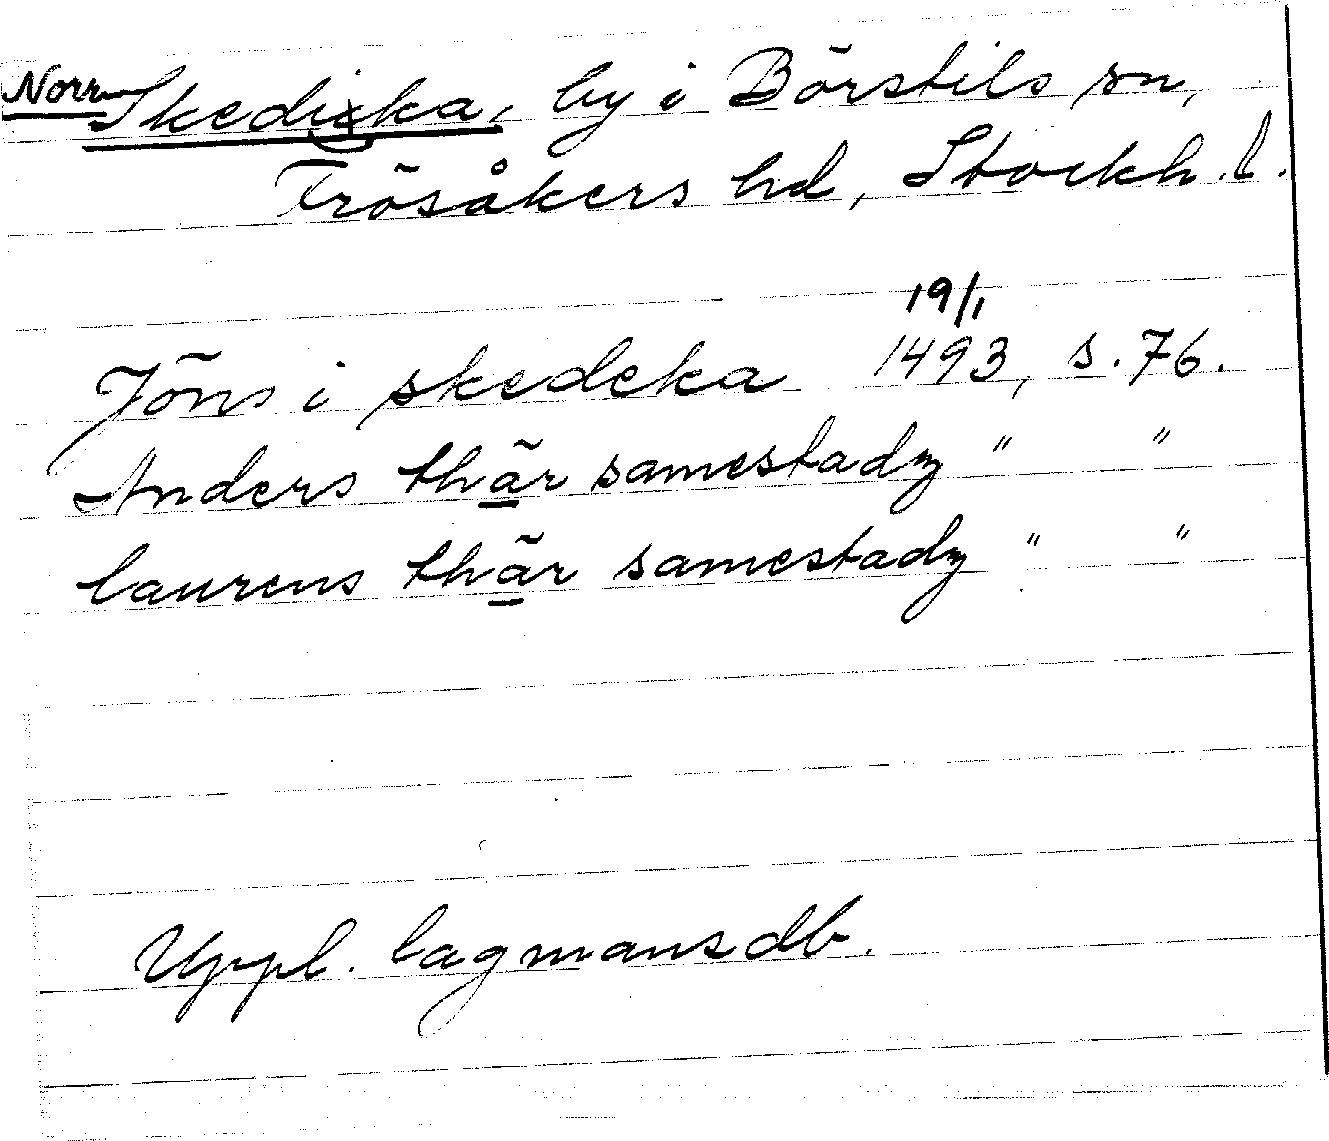 Norr Skedika, by i Börstils sn,
Frösåkers hd, Stockh. l.
19/1
Jöns i skedeka 1493, s. 76.
Anders thär samestadz " "
laurens thär samestadz " "
Uppl. lagmansdb.